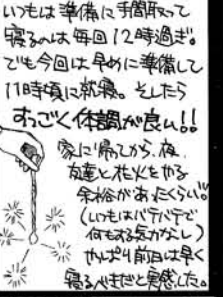 いつもは準備に手間取って
寝るのは毎回12時過ぎ。
でも今回は早めに準備して
11時頃に就寝。そしたら
すっごく体調が良い!!
家に帰ってから、夜、
友達と花火をやる
余裕があったくらい。
(いつもはバテバテで
何もする気がなし)
やっぱり前日は早く
寝るべきだと実感した。